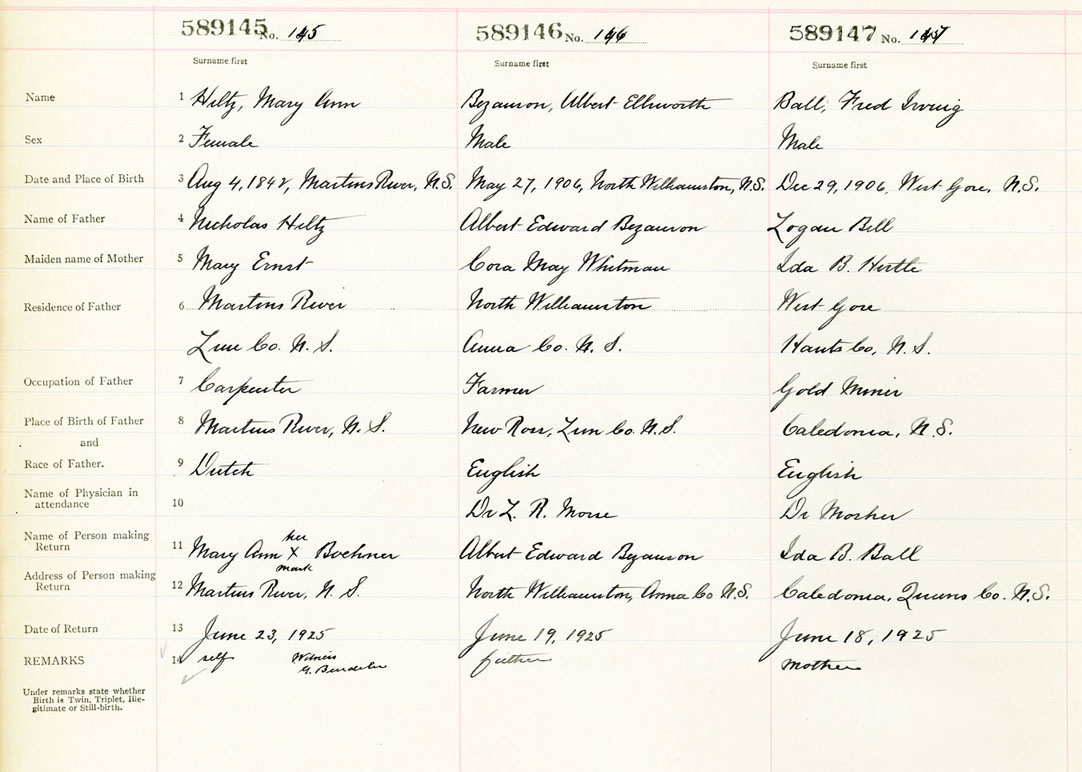 589145 No. 145 589146 No. 146 589147 No. 147
Surname first Surname first Surname first
Name 1 Hiltz, Mary Ann Bezanson, Albert Ellsworth Ball, Fred Irving
Sex 2 Female Male Male
Date and Place of Birth 3 Aug 4, 1842, Martins River, N.S. May 27, 1906, North Williamston, N.S. Dec 29, 1906, West Gore, N.S.
Name of Father 4 Nicholas Hiltz Albert Edward Bezanson Logan Bell
Maiden name of Mother 5 Mary Ernst Cora May Whitman Ida B. Hirtle
Residence of Father 6 Martins River North Williamston West Gore
Lun Co. N. S. Anna Co. N. S. Hants Co, N. S.
Occupation of Father 7 Carpenter Farmer Gold Miner
Place of Birth of Father 8 Martins River, N. S. New Ross, Lun Co. N.S. Caledonia, N. S.
and
Race of Father. 9 Dutch English English
Name of Physician in
attendance 10 Dr L. R. Morse Dr Mosher
Name of Person making
Return 11 Mary Ann her X mark Boehner Albert Edward Bezanson Ida B. Ball
Address of Person making
Return 12 Martins River, N. S. North Williamston, Anna Co N.S. Caledonia, Queens Co. N.S.
Date of Return 13 June 23, 1925 June 19, 1925 June 18, 1925
REMARKS 14 self Witness father mother
G.
Under remarks state whether
Birth is Twin, Triplet, Ille-
gitimate or Still-birth.